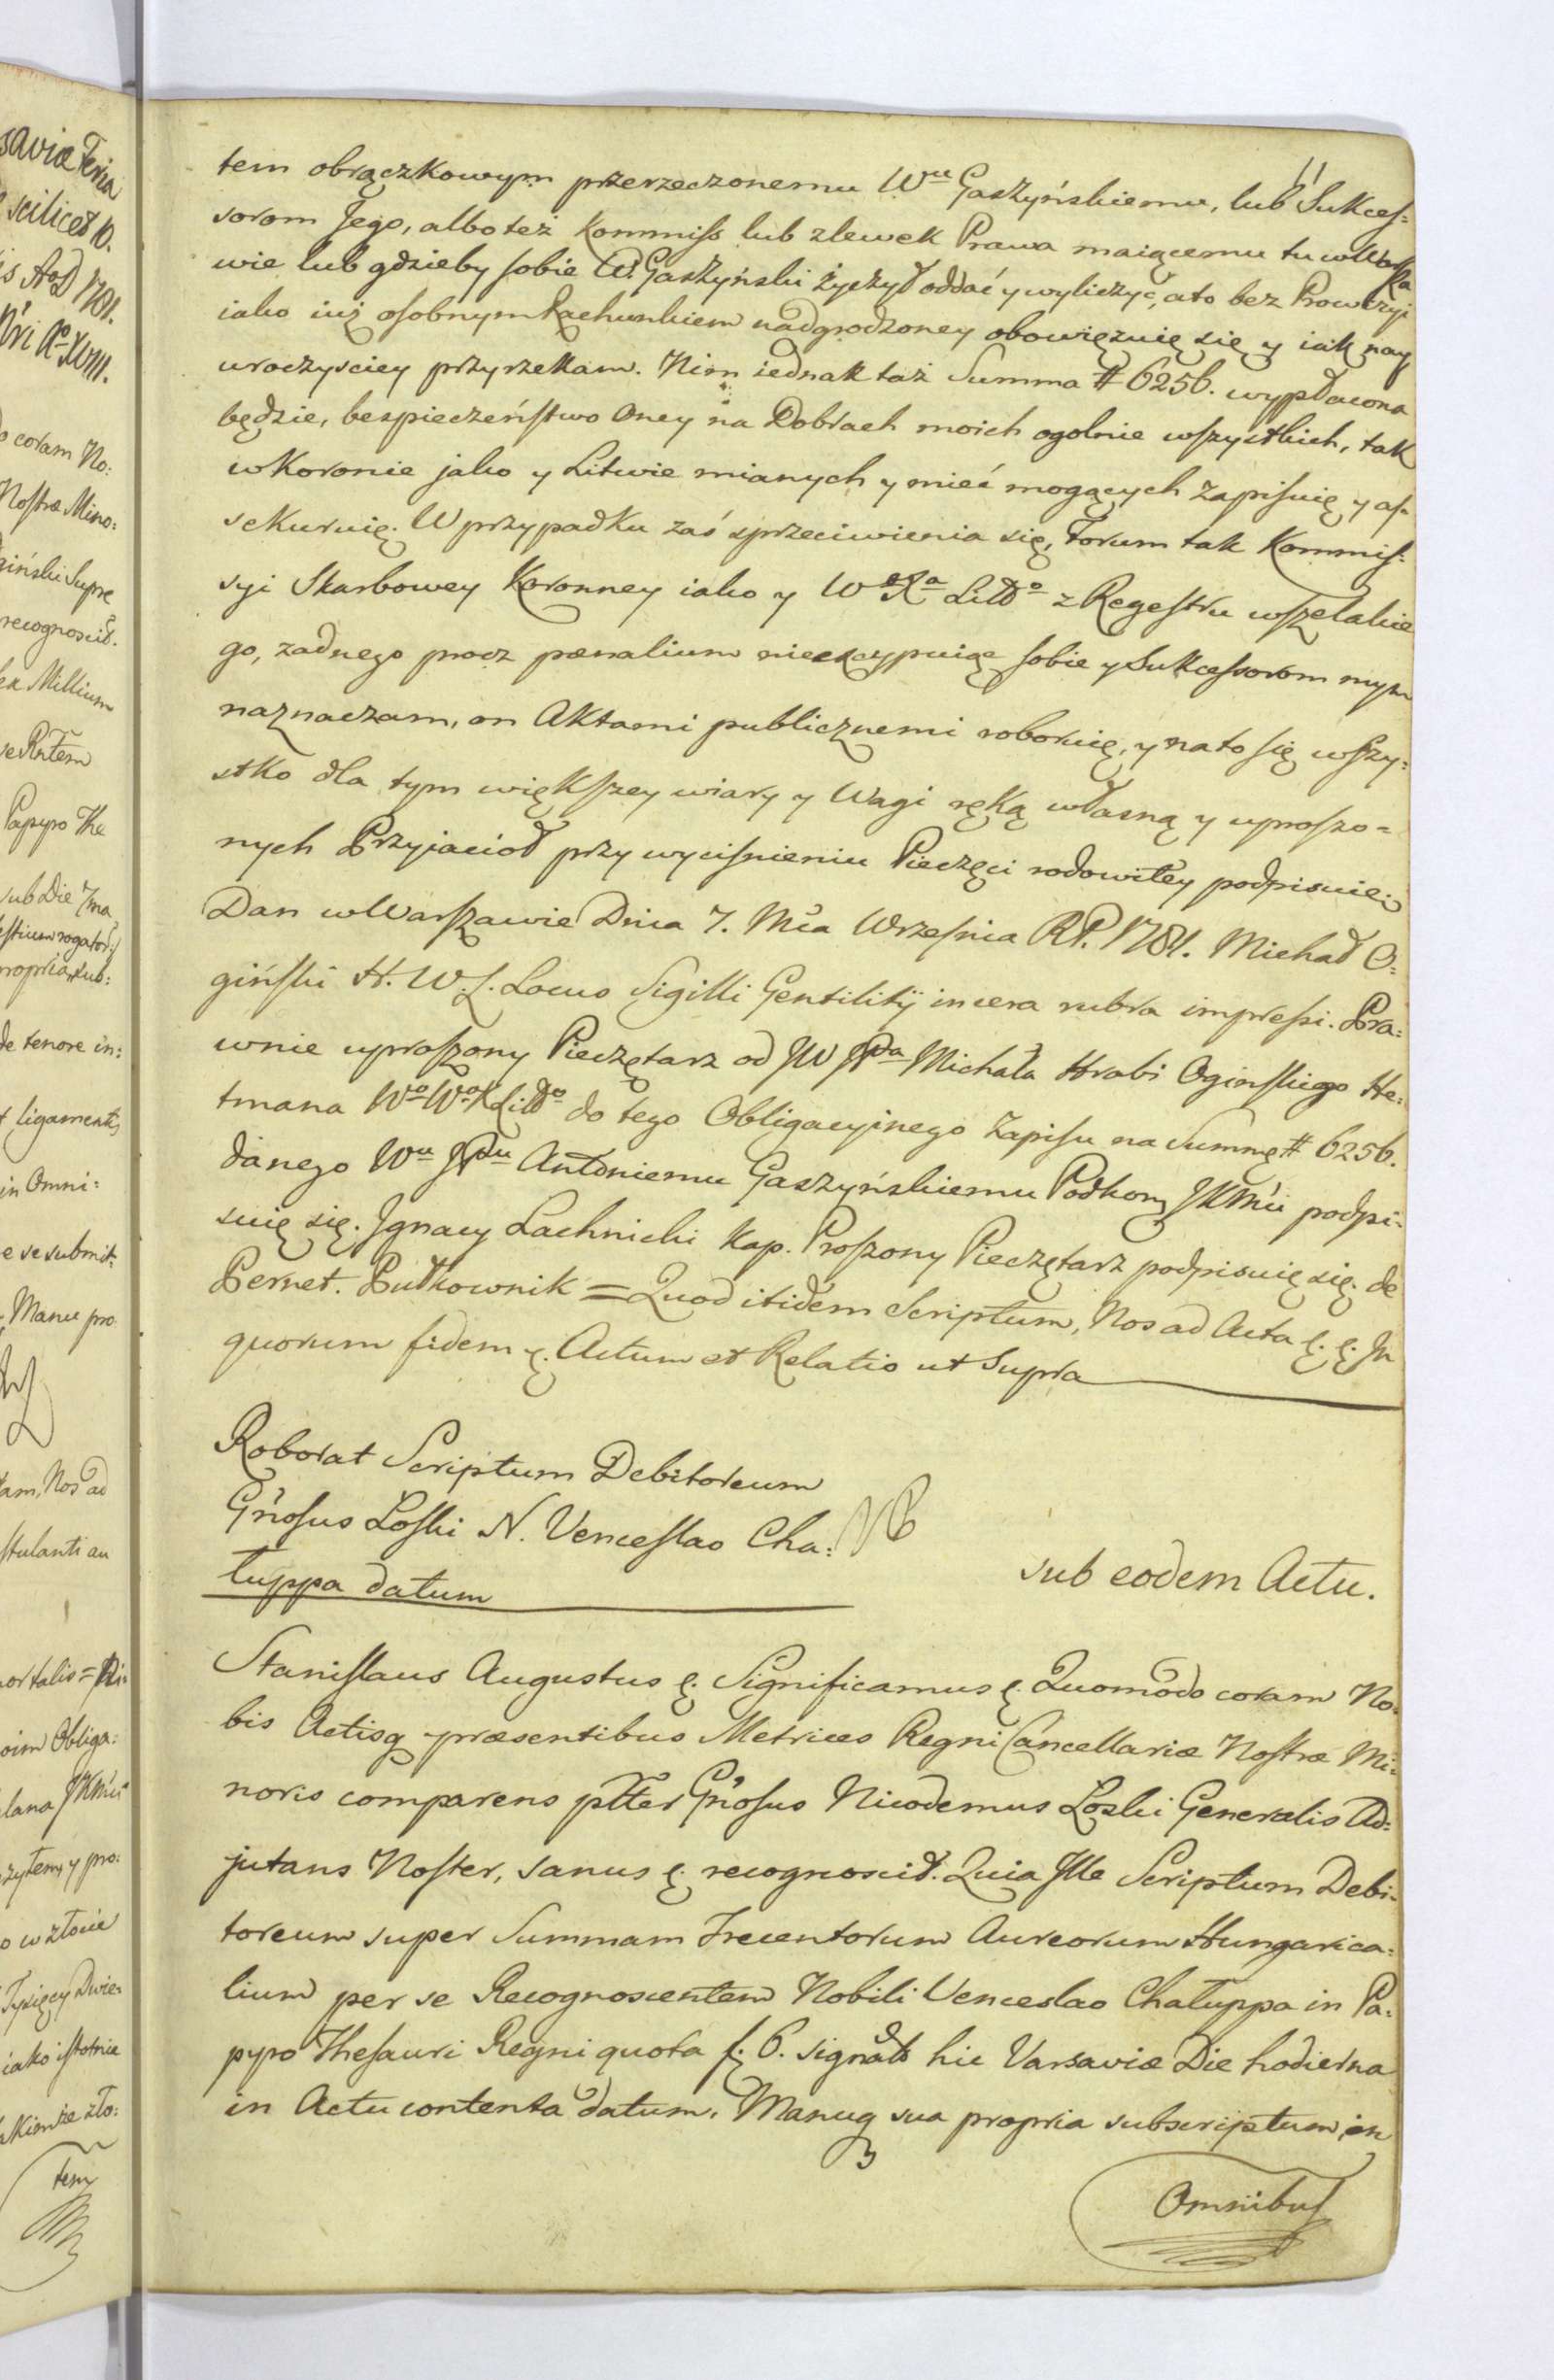 11
tem obrączkowym przerzeczonemu Wu Gaszyńskiemu, lub Sukces=
sorom Jego, albo też Kommiss lub zlewek Prawa maiącemu tu w Warsza
wie lub gdzieby sobie W. Gaszyński życzył oddać y wyliczyć, a to bez Prowizyi
iako iuż osobnym Rachunkiem nadgrodzoney obowięzuię się y iak nay
uroczysciey przyrzekam. Nim iednak taż Summa # 6256. wypłacona
będzie, bespieczeństwo Oney na Dobrach moich ogolnie wszystkich, tak
w Koronie jako y Litwie mianych y mieć mogących zapisuię y as=
sekuruię. W przypadku zaś sprzeciwienia się, Forum tak Kommis=
syi Skarbowey Koronney iako y Litto z Regestru wszelakie
go, zadnego procz pænalium nieexcypuiąc sobie y Sukcessorom mym
naznaczam, on Aktami publicznemi roboruię, y na to się wszy=
stko dla tym większey wiary y Wagi ręką własną y uproszo=
nych Przyiacioł przy wycisnieniu Pieczęci rodowitey podpisuię.
Dan w Warszawie Dnia 7. Mca Wrzesnia RP. 1781. Michał O=
giński H. W. L. Locus Sigilli Gentilitij in cera rubra impressi. Pra=
wnie uproszony Pieczętarz od JW JPa Michała Hrabi Oginskiego He=
tmana Wo Wo X Litto do tego Obligacyinego Zapisu na Summę # 6256.
danego Wu JPu Antoniemu Gaszyńskiemu Podkom JKMci podpi=
suię się. Jgnacy Lachnicki Kap. Proszony Pieczętarz podpisuię się. de
Pernet. Pułkownik = Quod itidem Scriptum, Nos ad Acta &. &. Jn
quorum fidem &. Actum et Relatio ut Supra
Roborat Scriptum Debitoreum
Gnosus Loski N. Venceslao Cha=
łuppa datum
sub eodem Actu.
Stanislaus Augustus &. Significamus &. Quomodo coram No=
bis Actisq præsentibus Metrices Regni Cancellariæ Nostræ Mi=
noris comparens plter Gnosus Nicodemus Loski Generalis Ad=
jutans Noster, sanus &. recognovit. Quia Jlle Scriptum Debi=
toreum super Summam Trecentorum Aureorum Hungarica=
lium per se Recognoscentem Nobili Venceslao Chałuppa in Pa=
pyro Thesauri Regni quota f. 6. signato hic Varsaviæ Die hodierna
in Actu contenta datum, Manuq sua propria subscriptum, in
Omnibus